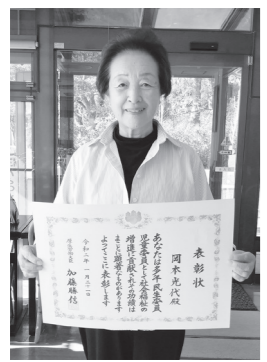 表彰状
岡本光代殿
あなたは多年民生委員
児童委員として社会福祉の
増進に貢献されその功績は
まことに顕著なものがあります
よってここに表彰します
令和二年一月三十一日
厚生労働大臣 加藤勝信